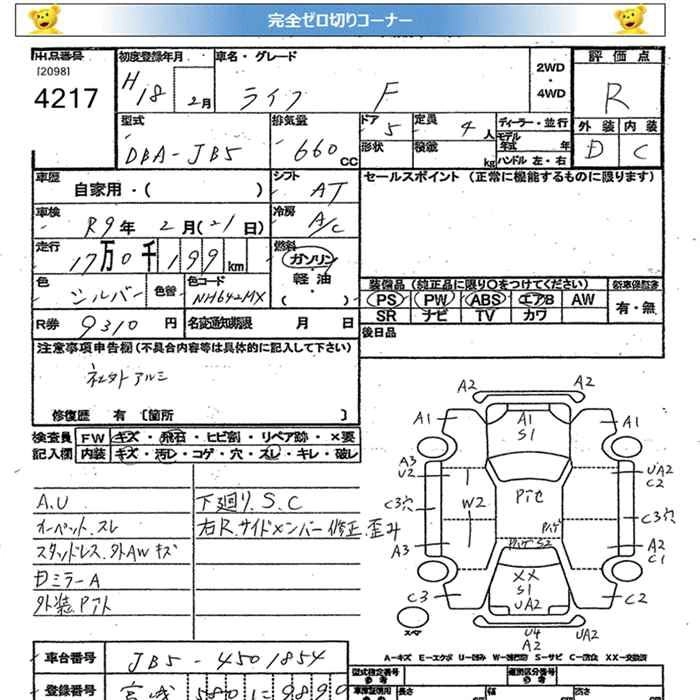 完全ゼロ切りコーナー
出品番号
[2098]
4217
初度登録年月
H18 2月
車名・グレード
ライフ F
2WD
・
4WD
評価点
R
外装 内装
D C
型式
DBA-JB5
排気量
660 CC
ドア 5
形状
定員 4人
積載 kg
ディーラー・並行
モデル年式 年
ハンドル 左・右
車歴
自家用・( )
シフト
AT
セールスポイント (正常に機能するものに限ります)
車検
R9年 2月(21日)
冷房
A/C
走行
17万0千199km
燃料
ガソリン
軽油
・( )
色
シルバー
色替
色コード
NH642MX
装備品 (純正品に限り〇をつけてください)
PS PW ABS エアB AW
SR ナビ TV カワ
新車保証書
有・無
R券 9310 円
名変通知期限 月 日
後日品
注意事項申告欄 (不具合内容等は具体的に記入して下さい)
社外アルミ
修復歴 有 [箇所 ]
検査員 FW キズ・飛石・ヒビ割・リペア跡・×要
記入欄 内装 キズ・汚レ・コゲ・穴・スレ・キレ・破レ
A.U
オーペット.スレ
スタッドレス.外AWキズ
Dミラー A
外装.Pアト
下廻り.S.C
右R.サイドメンバー修正.歪み
A2 A2
A1 A1 A1
S1
A3
U2
UA2
C2
W2
Pイセ
C3穴 C3穴
Pイセ
Pイセ S2
A3 A2
C1
XX
S1
UA2
C3 C2
スペア
U4 UA2
A2
A-キズ E-エクボ U-凹み W-補修跡 S-サビ C-腐食 XX-交換済
車台番号
JB5-4501854
型式指定番号
類別区分番号
登録番号
宮城 580
車庫証明用
参考
長さ
幅
高さ
参考